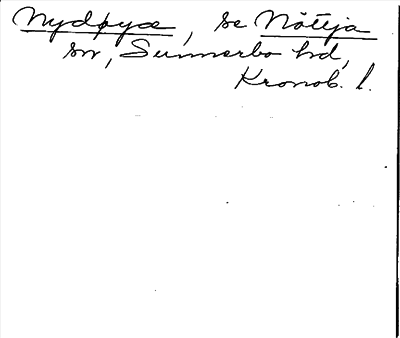 Nydøyæ, se Nöttja
sn, Sunnerbo hd,
Kronob. l.